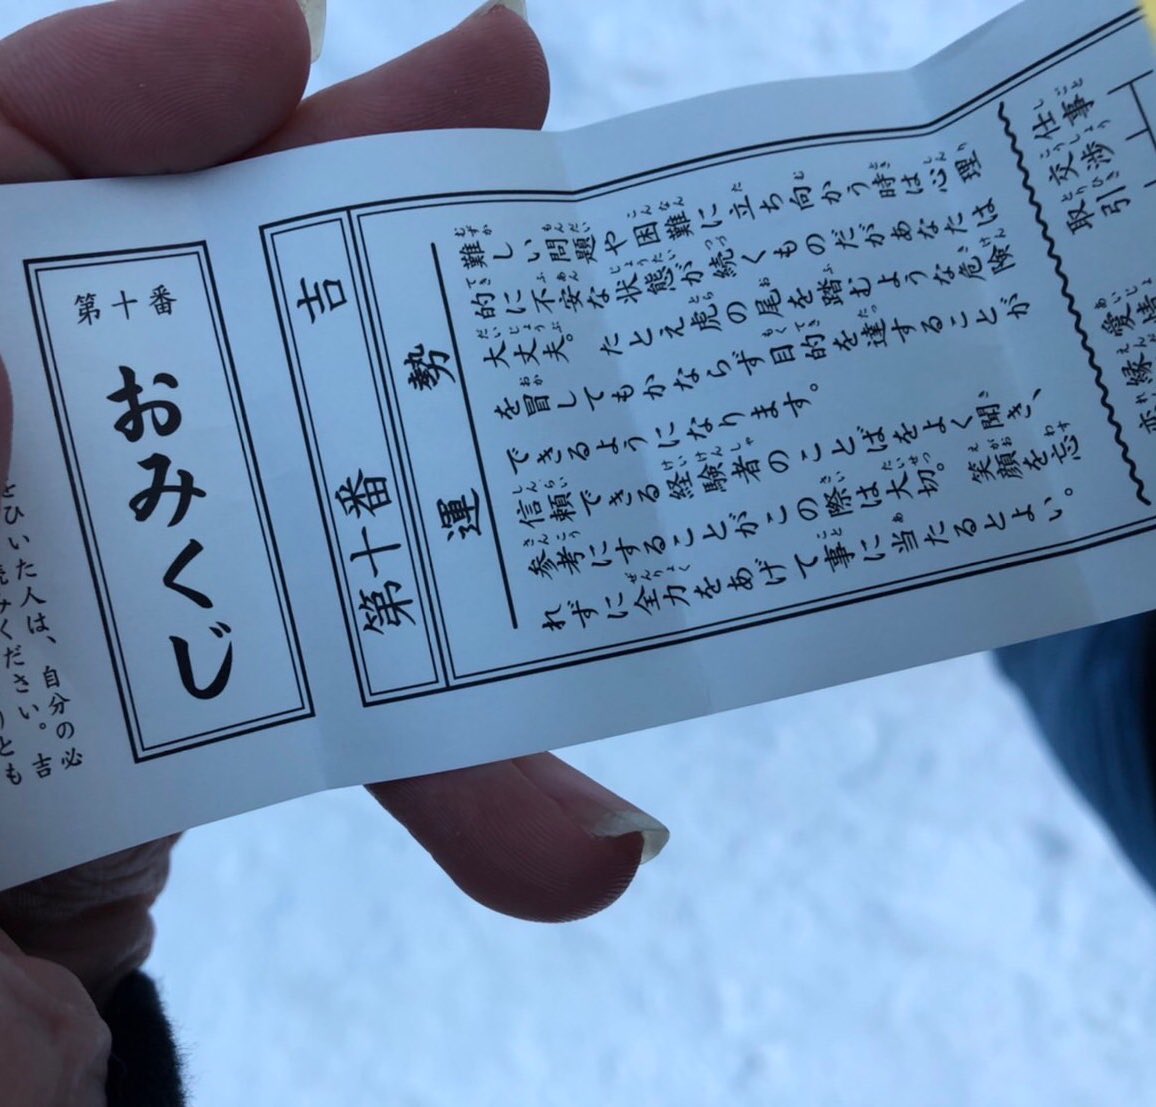 ひいた人は、自分の必
みください。吉
とも
第十番
おみくじ
第十番 吉
運勢
難しい問題や困難に立ち向かう時は心理
的に不安な状態が続くものだがあなたは
大丈夫。たとえ虎の尾を踏むような危険
を冒してもかならず目的を達することが
できるようになります。
信頼できる経験者のことばをよく聞き、
参考にすることがこの際は大切。笑顔を忘
れずに全力をあげて事に当たるとよい。
仕事
交渉
取引
愛情
縁